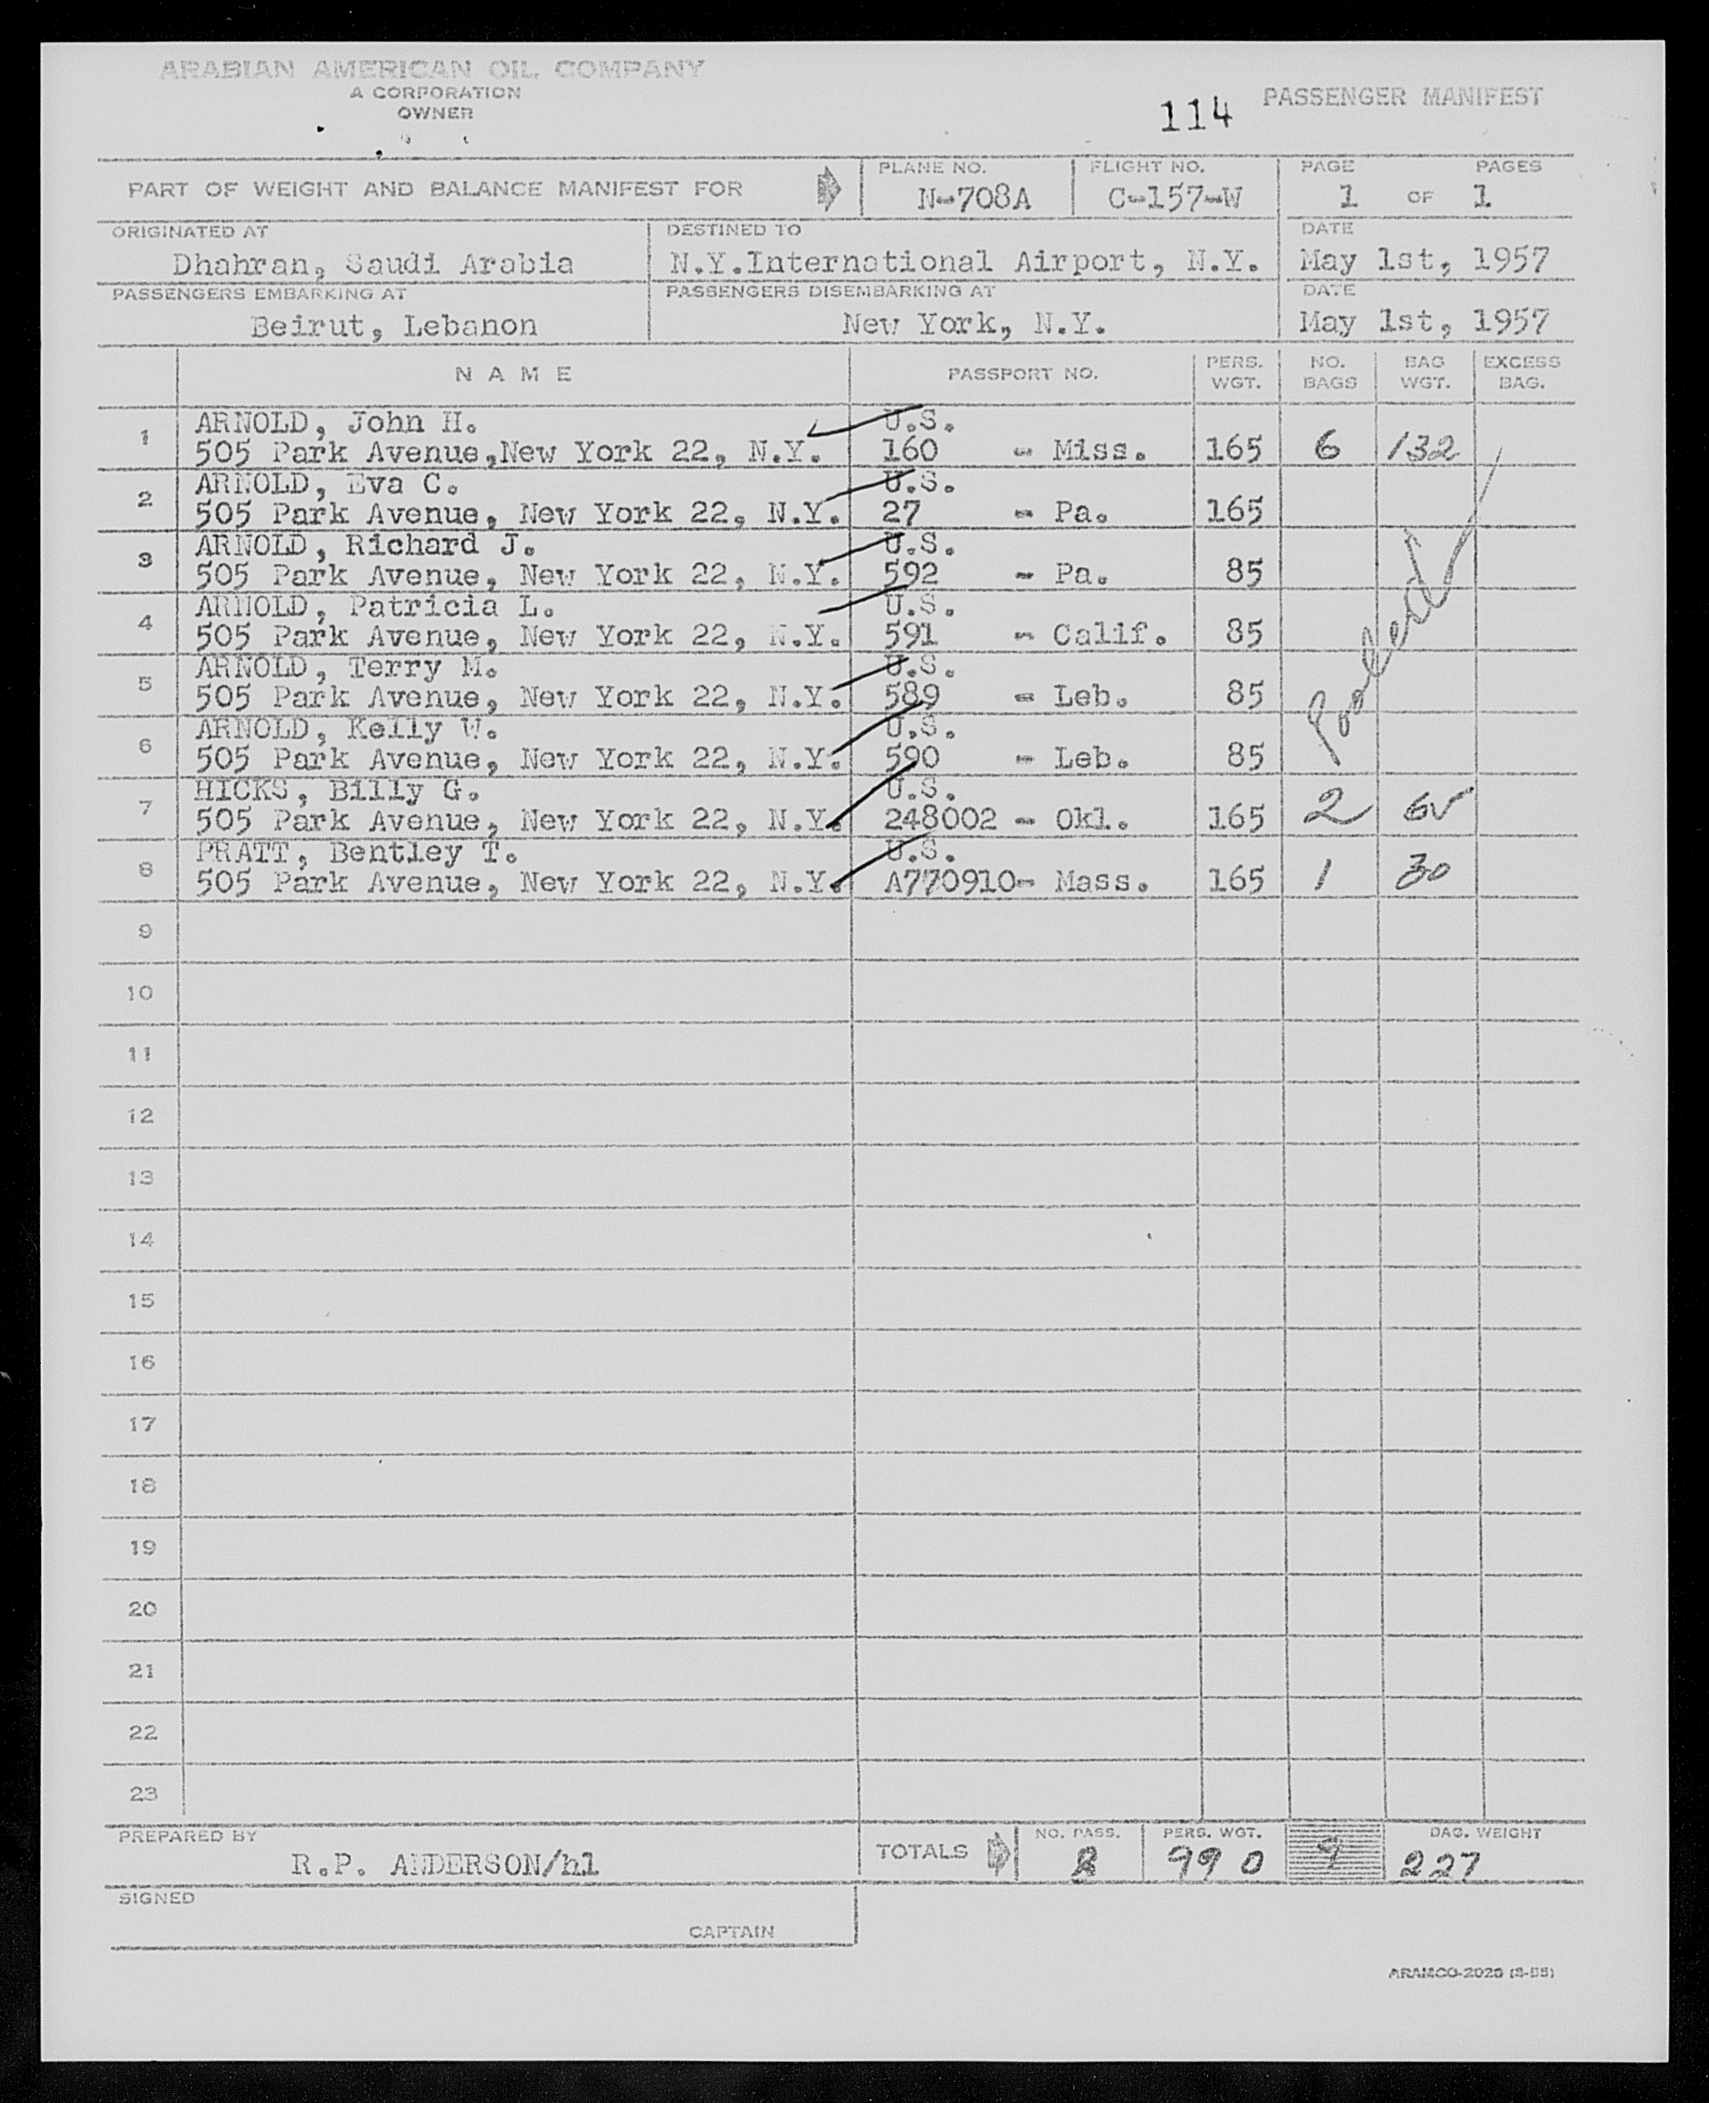 ARABIAN AMERICAN OIL COMPANY
A CORPORATION
OWNER
114 PASSENGER MANIFEST
PART OF WEIGHT AND BALANCE MANIFEST FOR
PLANE NO. N-708A
FLIGHT NO. C-157-W
PAGE 1 OF 1 PAGES
ORIGINATED AT Dhahran, Saudi Arabia
DESTINED TO N.Y.International Airport, N.Y.
DATE May 1st, 1957
PASSENGERS EMBARKING AT Beirut, Lebanon
PASSENGERS DISEMBARKING AT New York, N.Y.
DATE May 1st, 1957
NAME PASSPORT NO. PERS. WGT. NO. BAGS BAG WGT. EXCESS BAG.
1 ARNOLD, John H. U.S.
505 Park Avenue,New York 22, N.Y. 160 - Miss. 165 6 132
2 ARNOLD, Eva C. U.S.
505 Park Avenue, New York 22, N.Y. 27 - Pa. 165
3 ARNOLD, Richard J. U.S.
505 Park Avenue, New York 22, N.Y. 592 - Pa. 85
4 ARNOLD, Patricia L. U.S.
505 Park Avenue, New York 22, N.Y. 591 - Calif. 85
5 ARNOLD, Terry M. U.S.
505 Park Avenue, New York 22, N.Y. 589 - Leb. 85
6 ARNOLD, Kelly W. U.S.
505 Park Avenue, New York 22, N.Y. 590 - Leb. 85
Pooled
7 HICKS, Billy G. U.S.
505 Park Avenue, New York 22, N.Y. 248002 - Okl. 165 2 65
8 PRATT, Bentley T. U.S.
505 Park Avenue, New York 22, N.Y. A770910- Mass. 165 1 30
9
10
11
12
13
14
15
16
17
18
19
20
21
22
23
PREPARED BY R.P. ANDERSON/hl
TOTALS
NO. PASS. 8
PERS. WGT. 990
9
BAG. WEIGHT 227
SIGNED
CAPTAIN